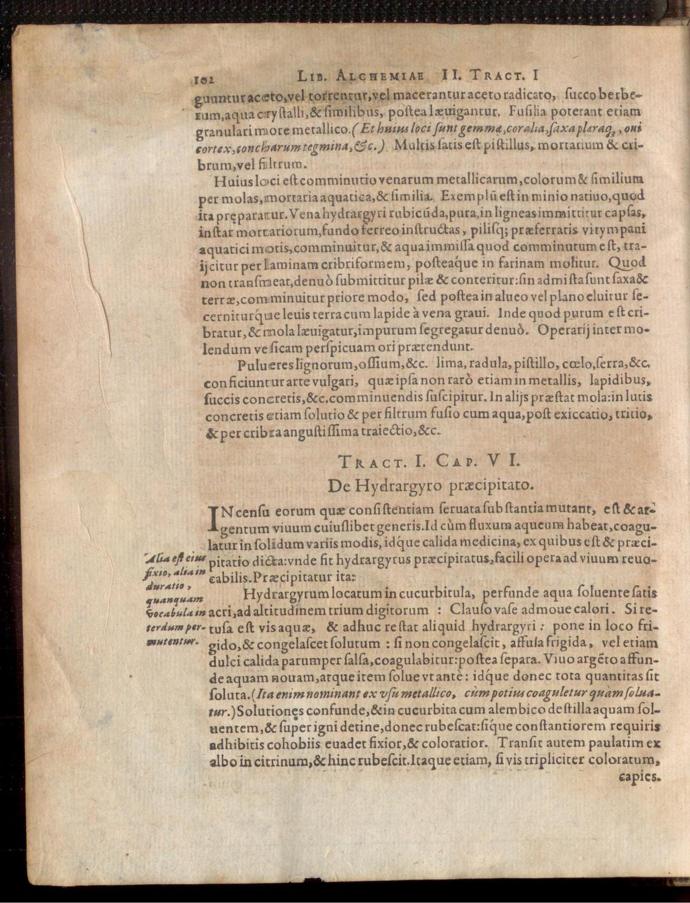 102 LIB. ALCHEMIAE II. TRACT. I
guuntur aceto, vel torrentur, vel macerantur aceto radicato, succo berbe-
rum, aqua crystalli, & similibus, postea læuigantur. Fusilia poterant etiam
granulari more metallico. (Et huius loci sunt gemmæ, coralia, saxa pleraq;, oui
cortex, concharum tegmina, &c.) Multis satis est pistillus, mortarium & cri-
brum, vel filtrum.
Huius loci est comminutio venarum metallicarum, colorum & similium
per molas, mortaria aquatica, & similia. Exemplū est in minio natiuo, quod
ita pręparatur. Vena hydrargyri rubicūda, pura, in ligneas immittitur capsas,
instar mortariorum, fundo ferreo instructas, pilisq; præferratis vi tympani
aquatici motis, comminuitur, & aqua immissa quod comminutum est, tra-
ijcitur per laminam cribriformem, posteaque in farinam molitur. Quod
non transmeat, denuò submittitur pilæ & conteritur: sin admista sunt saxa &
terræ, comminuitur priore modo, sed postea in alueo vel plano eluitur se-
cerniturque leuis terra cum lapide à vena graui. Inde quod purum est cri-
bratur, & mola læuigatur, impurum segregatur denuò. Operarij inter mo-
lendum vesicam perspicuam ori prætendunt.
Pulueres lignorum, ossium, &c. lima, radula, pistillo, cœlo, serra, &c.
conficiuntur arte vulgari, quæ ipsa non rarò etiam in metallis, lapidibus,
succis concretis, &c. comminuendis suscipitur. In alijs præstat mola: in lutis
concretis etiam solutio & per filtrum fusio cum aqua, post exiccatio, tritio,
& per cribra angustissima traiectio, &c.
TRACT. I. CAP. VI.
De Hydrargyro præcipitato.
IN censu eorum quæ consistentiam seruata substantia mutant, est & ar-
gentum viuum cuiuslibet generis. Id cùm fluxum aqueum habeat, coagu-
latur in solidum variis modis, idq́ue calida medicina, ex quibus est & præci-
pitatio dicta: vnde fit hydrargyrus præcipitatus, facili opera ad viuum reuo-
cabilis. Præcipitatur ita:
Alia est eius
fixio, alia in
duratio,
quanquam
vocabula in
terdum per-
mutentur.
Hydrargyrum locatum in cucurbitula, perfunde aqua soluente satis
acri, ad altitudinem trium digitorum : Clauso vase admoue calori. Si re-
tusa est vis aquæ, & adhuc restat aliquid hydrargyri : pone in loco fri-
gido, & congelascet solutum : si non congelascit, affusa frigida, vel etiam
dulci calida parumper salsa, coagulabitur: postea separa. Viuo argēto affun-
de aquam nouam, atque item solue vt antè : idq́ue donec tota quantitas sit
soluta. (Ita enim nominant ex vsu metallico, cum potius coaguletur quàm solua-
tur.) Solutiones confunde, & in cucurbita cum alembico destilla aquam sol-
uentem, & super igni detine, donec rubescat: siq́ue constantiorem requiris
adhibitis cohobiis euadet fixior, & coloratior. Transit autem paulatim ex
albo in citrinum, & hinc rubescit. Itaque etiam, si vis tripliciter coloratum,
capies.